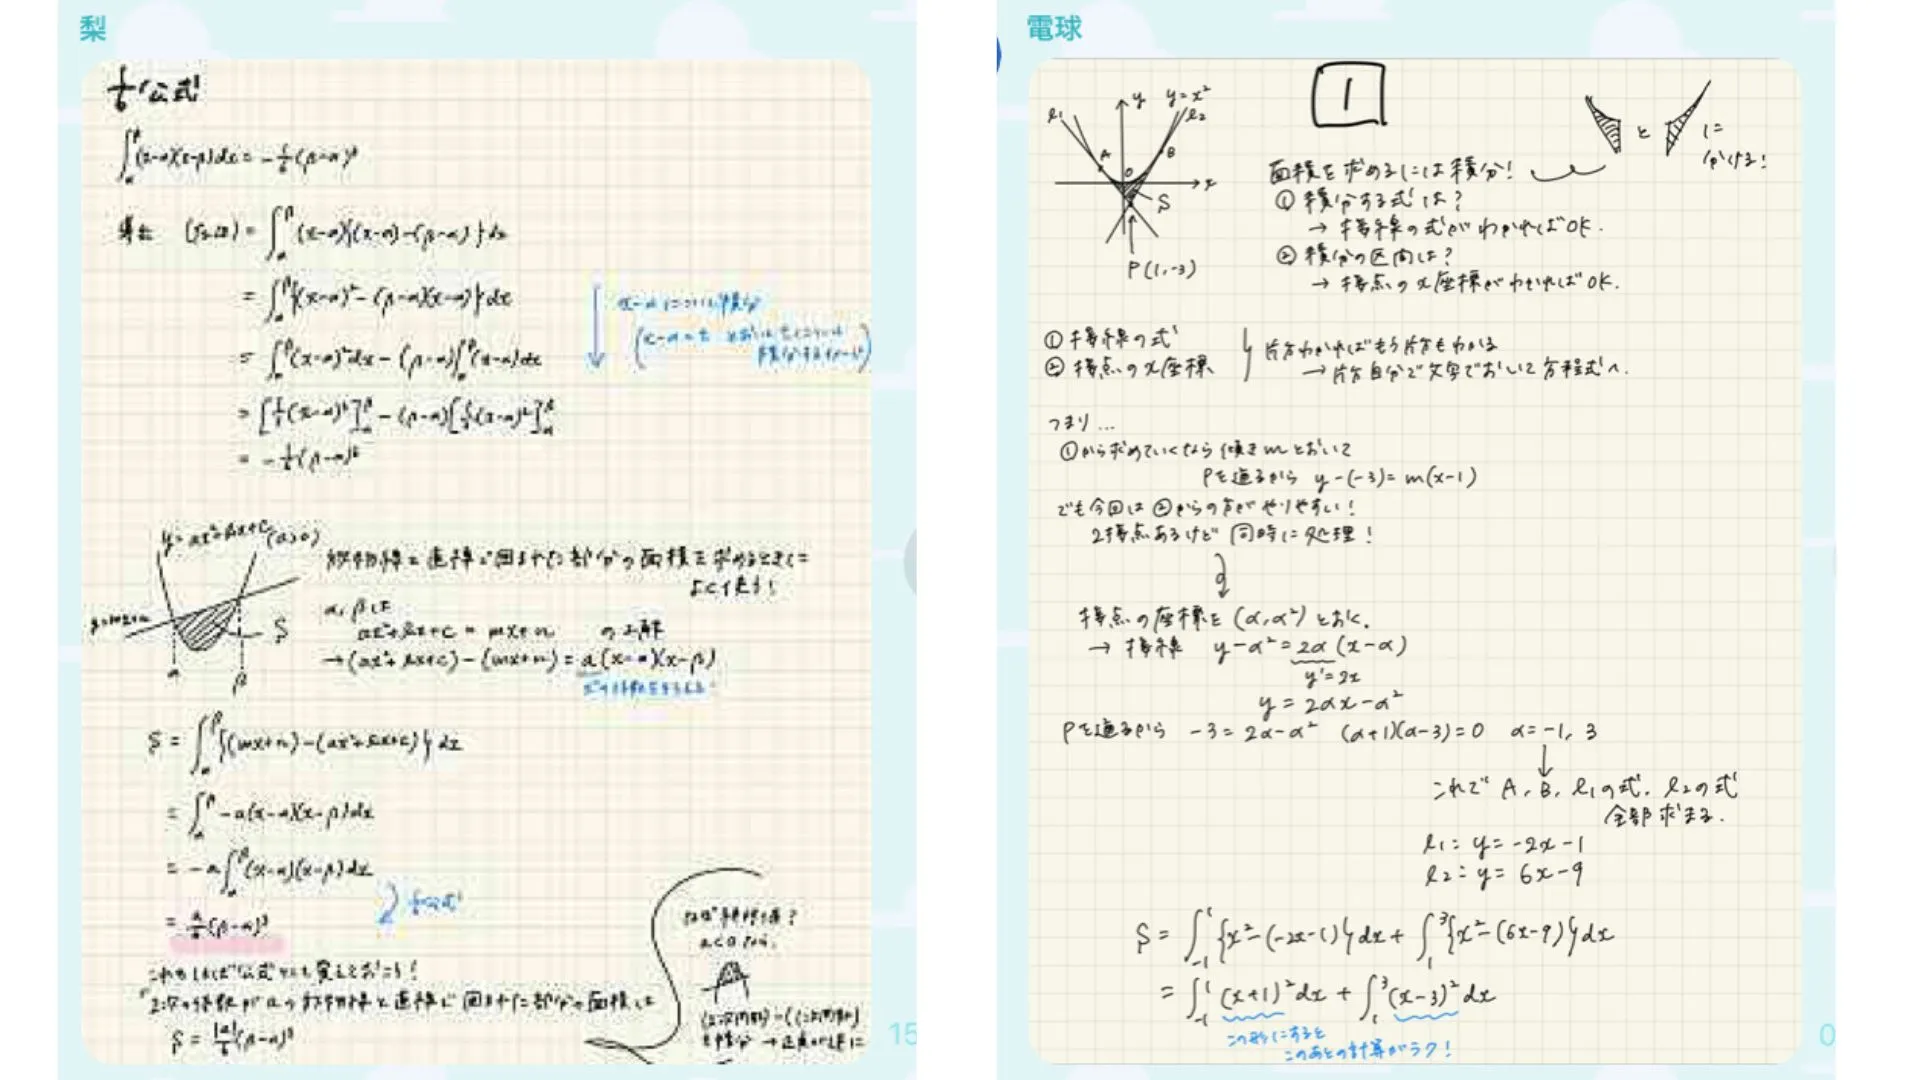 梨
1/6公式
∫_α^β (x-α)(x-β)dx = -1/6(β-α)³
= ∫_α^β (x-α){(x-α)-(β-α)}dx
= ∫_α^β {(x-α)²-(β-α)(x-α)}dx
= ∫_α^β (x-α)²dx - (β-α)∫_α^β (x-α)dx
= [1/3(x-α)³]_α^β - (β-α)[1/2(x-α)²]_α^β
= -1/6(β-α)³
x-αについて積分
y=ax²+bx+c (a>0)
放物線と直線で囲まれた部分の面積を求めるときに
よく使う!
y=mx+n
S
α
β
α, βは
ax²+bx+c = mx+n の2解
→(ax²+bx+c)-(mx+n) = a(x-α)(x-β)
S = ∫_α^β {(mx+n)-(ax²+bx+c)}dx
= ∫_α^β -a(x-α)(x-β)dx
= -a∫_α^β (x-α)(x-β)dx
1/6公式
= a/6(β-α)³
2次の係数がaの放物線と直線で囲まれた部分の面積は
S = |a|/6(β-α)³
a<0なら、
15
電球
1
y
y=x²
l1
l2
A
B
O
x
S
P(1,-3)
と
に
分ける!
面積を求めるには積分!
① 積分する式は?
→ 接線の式がわかればOK.
② 積分の区間は?
→ 接点のx座標がわかればOK.
① 接線の式
② 接点のx座標
片方わかればもう片方もわかる
→ 片方自分で文字でおいて方程式へ.
つまり...
①から求めていくなら傾きmとおいて
Pを通るから y-(-3)=m(x-1)
でも今回は②からの方がやりやすい!
2接点あるけど同時に処理!
接点の座標を(α,α²)とおく.
→ 接線 y-α²=2α(x-α)
y'=2x
y=2αx-α²
Pを通るから -3=2α-α² (α+1)(α-3)=0 α=-1, 3
これで A, B, l1の式, l2の式
全部求まる.
l1: y=-2x-1
l2: y=6x-9
S = ∫_{-1}^{1} {x²-(-2x-1)}dx + ∫_{1}^{3} {x²-(6x-9)}dx
= ∫_{-1}^{1} (x+1)²dx + ∫_{1}^{3} (x-3)²dx
この形にすると
このあとの計算がラク!
0